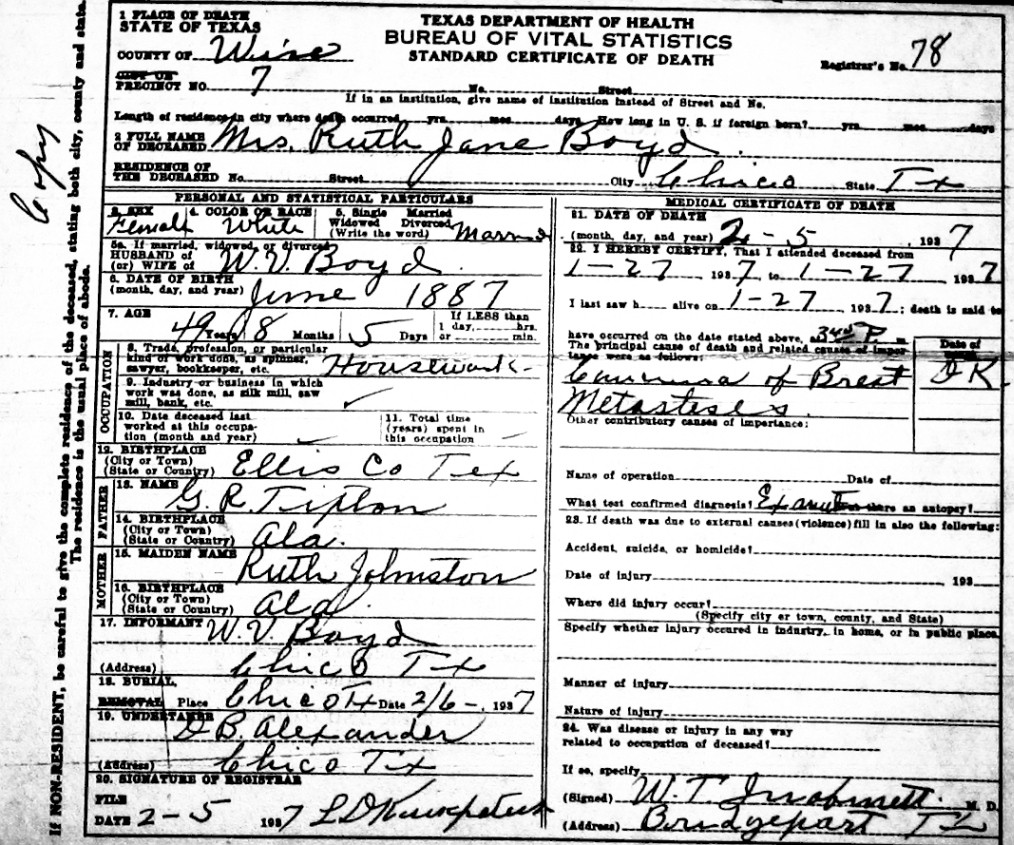 1 PLACE OF DEATH
STATE OF TEXAS
COUNTY OF Wise
CITY OR
PRECINCT NO. 7
TEXAS DEPARTMENT OF HEALTH
BUREAU OF VITAL STATISTICS
STANDARD CERTIFICATE OF DEATH
Registrar's No. 78
No. Street
If in an institution, give name of institution instead of Street and No.
Length of residence in city where death occurred yrs. mos. days. How long in U. S. if foreign born? yrs. mos. days
2 FULL NAME
OF DECEASED Mrs. Ruth Jane Boyd.
RESIDENCE OF
THE DECEASED No. Street City Chico State Tx
PERSONAL AND STATISTICAL PARTICULARS
3. SEX Female 4. COLOR OR RACE White 5. Single Married
Widowed Divorced
(Write the word) Married
5a. If married, widowed, or divorced
HUSBAND of
(or) WIFE of W. V. Boyd.
6. DATE OF BIRTH
(month, day, and year) June 1887
7. AGE 49 Years 8 Months 5 Days If LESS than
1 day, hrs.
or min.
OCCUPATION
8. Trade, profession, or particular
kind of work done, as spinner,
sawyer, bookkeeper, etc. Housework.
9. Industry or business in which
work was done, as silk mill, saw
mill, bank, etc. ✓
10. Date deceased last
worked at this occupa-
tion (month and year)
11. Total time
(years) spent in
this occupation
12. BIRTHPLACE
(City or Town)
(State or Country) Ellis Co Tex
FATHER
13. NAME G. R. Tipton
14. BIRTHPLACE
(City or Town)
(State or Country) Ala.
MOTHER
15. MAIDEN NAME Ruth Johnston
16. BIRTHPLACE
(City or Town)
(State or Country) Ala.
17. INFORMANT W. V. Boyd
(Address) Chico Tx
18. BURIAL,
REMOVAL Place Chico Tx Date 2/6-, 1937
19. UNDERTAKER D B. Alexander
(Address) Chico Tx
20. SIGNATURE OF REGISTRAR
FILE
DATE 2-5 1937
MEDICAL CERTIFICATE OF DEATH
21. DATE OF DEATH
(month, day, and year) 2-5, 1937
22. I HEREBY CERTIFY, That I attended deceased from
1-27 1937, to 1-27 1937
I last saw h alive on 1-27, 1937; death is said to
have occurred on the date stated above, at P m.
The principal cause of death and related causes of impor-
tance were as follows:
Date of
of Brest D K.
Metasteses.
Other contributory causes of importance:
Name of operation Date of
What test confirmed diagnosis? Was there an autopsy?
23. If death was due to external causes (violence) fill in also the following:
Accident, suicide, or homicide?
Date of injury 193
Where did injury occur?
(Specify city or town, county, and State)
Specify whether injury occured in industry, in home, or in public place.
Manner of injury
Nature of injury
24. Was disease or injury in any way
related to occupation of deceased?
If so, specify
(Signed) W. T. M. D.
(Address) Bridgeport Tx
Copy
If NON-RESIDENT, be careful to give the complete residence of the deceased, stating both city, county and state.
The residence is the usual place of abode.